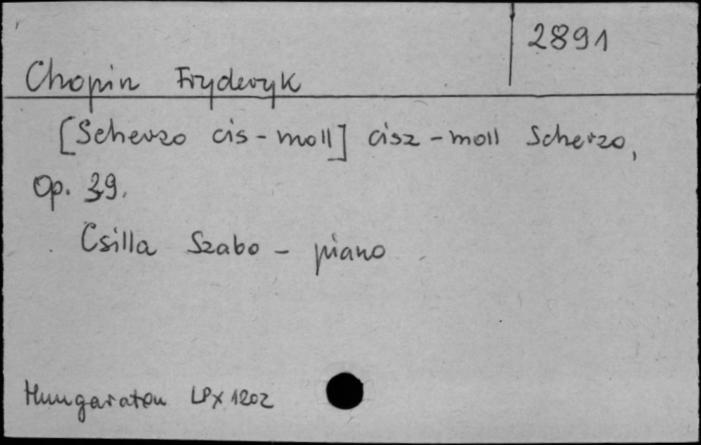 2891
Chopin Fryderyk
[Scherzo cis-moll] cisz-moll Scherzo,
Op. 39.
Csilla Szabo - piano
Hungaraton LPX 1202